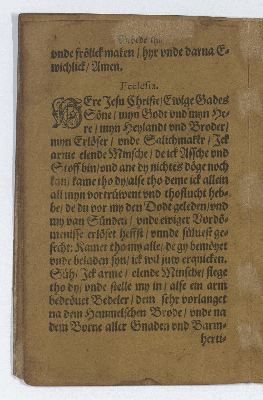 Gebede tho
vnde frölick maken / hyr vnde darna E-
wichlick / Amen.
Ecclesia.
HEre Jesu Christe / Ewige Gades
Söne / myn Godt vnd myn He-
re / myn Heylandt vnd Broder /
myn Erlöser / vnde Salichmaker / Ick
arme elende Minsche / de ick Assche vnd
Stoff bin / vnd ane dy nichtes döge noch
kan / kame tho dy / alse tho deme ick allein
all myn vortrüwent vnd thoflucht heb-
be / de du vor my den Dodt geleden / vnd
my van Sünden / vnde ewiger Vordö-
menisse erlöset heffst / vnnde süluest ge-
secht: Kamet tho my alle / de gy bemöyet
vnde beladen syn / ick wil juw erquicken.
Süh / Ick arme / elende Minsche / flege
tho dy / vnde stelle my in / alse ein arm
bedröuet Bedeler / dem sehr vorlanget
na dem Hemmelschen Brode / vnde na
dem Borne aller Gnaden vnd Barm-
herti-